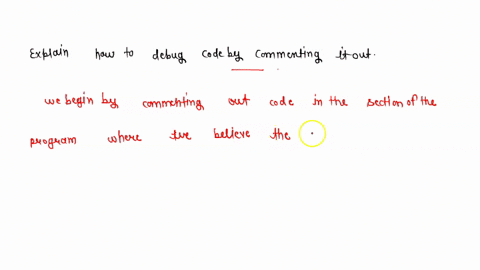 Explain how to debug code by commenting it out.
we begin by commenting out code in the section of the
program where we believe the